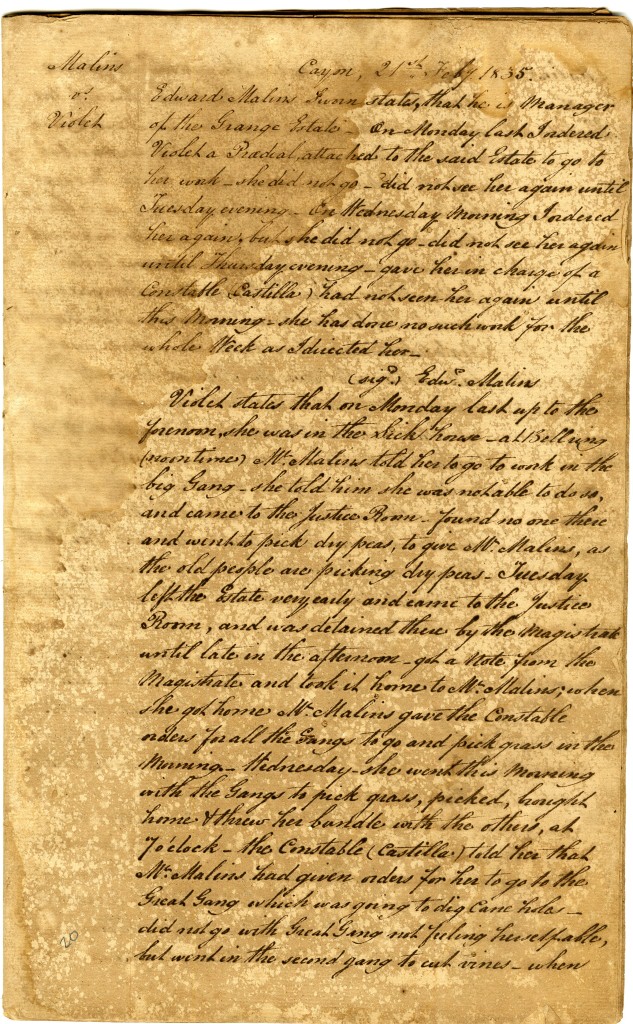 Malins
vs
Violet
Cayon, 21st Feby 1835.
Edward Malins Gunn states, that he is Manager
of the Grange Estate – On Monday last I ordered
Violet a Prædial, attached to the said Estate to go to
her work – she did not go – did not see her again until
Tuesday evening – On Wednesday Morning I ordered
her again, but she did not go – did not see her again
until Thursday evening – gave her in charge of a
Constable (Castilla) had not seen her again until
this Morning – she has done no such work for the
whole Week as I directed her –
(sigd.) Edwd. Malins
Violet states that on Monday last up to the
forenoon, she was in the Sick house – at Bell ring
(noontime) Mr. Malins told her to go to work in the
big Gang – she told him she was not able to do so,
and came to the Justice Room – found no one there
and went to pick dry peas, to give Mr. Malins, as
the old people are picking dry peas – Tuesday
left the Estate very early and came to the Justice
Room, and was detained there by the Magistrate
until late in the afternoon – got a Note from the
Magistrate and took it home to Mr. Malins; when
she got home Mr. Malins gave the Constable
orders for all the Gangs to go and pick grass in the
Morning – Wednesday – she went this Morning
with the Gangs to pick grass, picked, brought
home & threw her bundle with the others, at
7 o'clock – the Constable (Castilla) told her that
Mr. Malins had given orders for her to go to the
Great Gang which was going to dig Cane holes –
did not go with Great Gang not feeling herself able,
but went in the second gang to cut vines – when
20